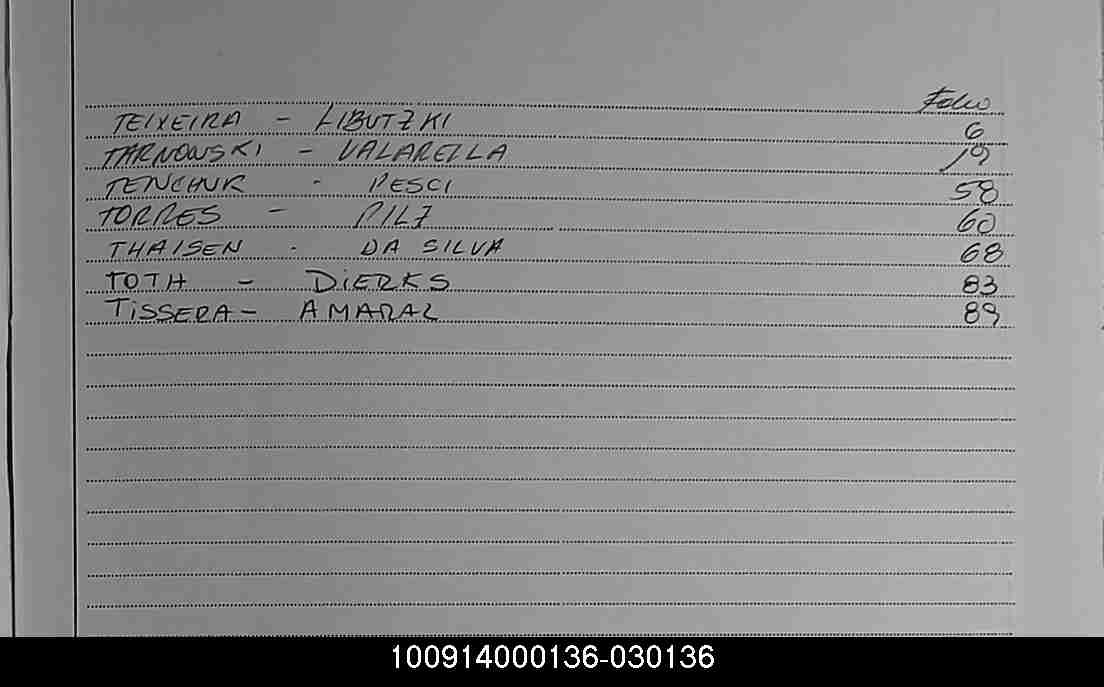 Folio
TEIXEIRA - LIBUTZKI 6
TARNOWSKI - VALARELLA 19
TENCHUR - PESCI 58
TORRES - PILZ 60
THAISEN - DA SILVA 68
TOTH - DIERKS 83
TISSERA - AMARAL 89
100914000136-030136